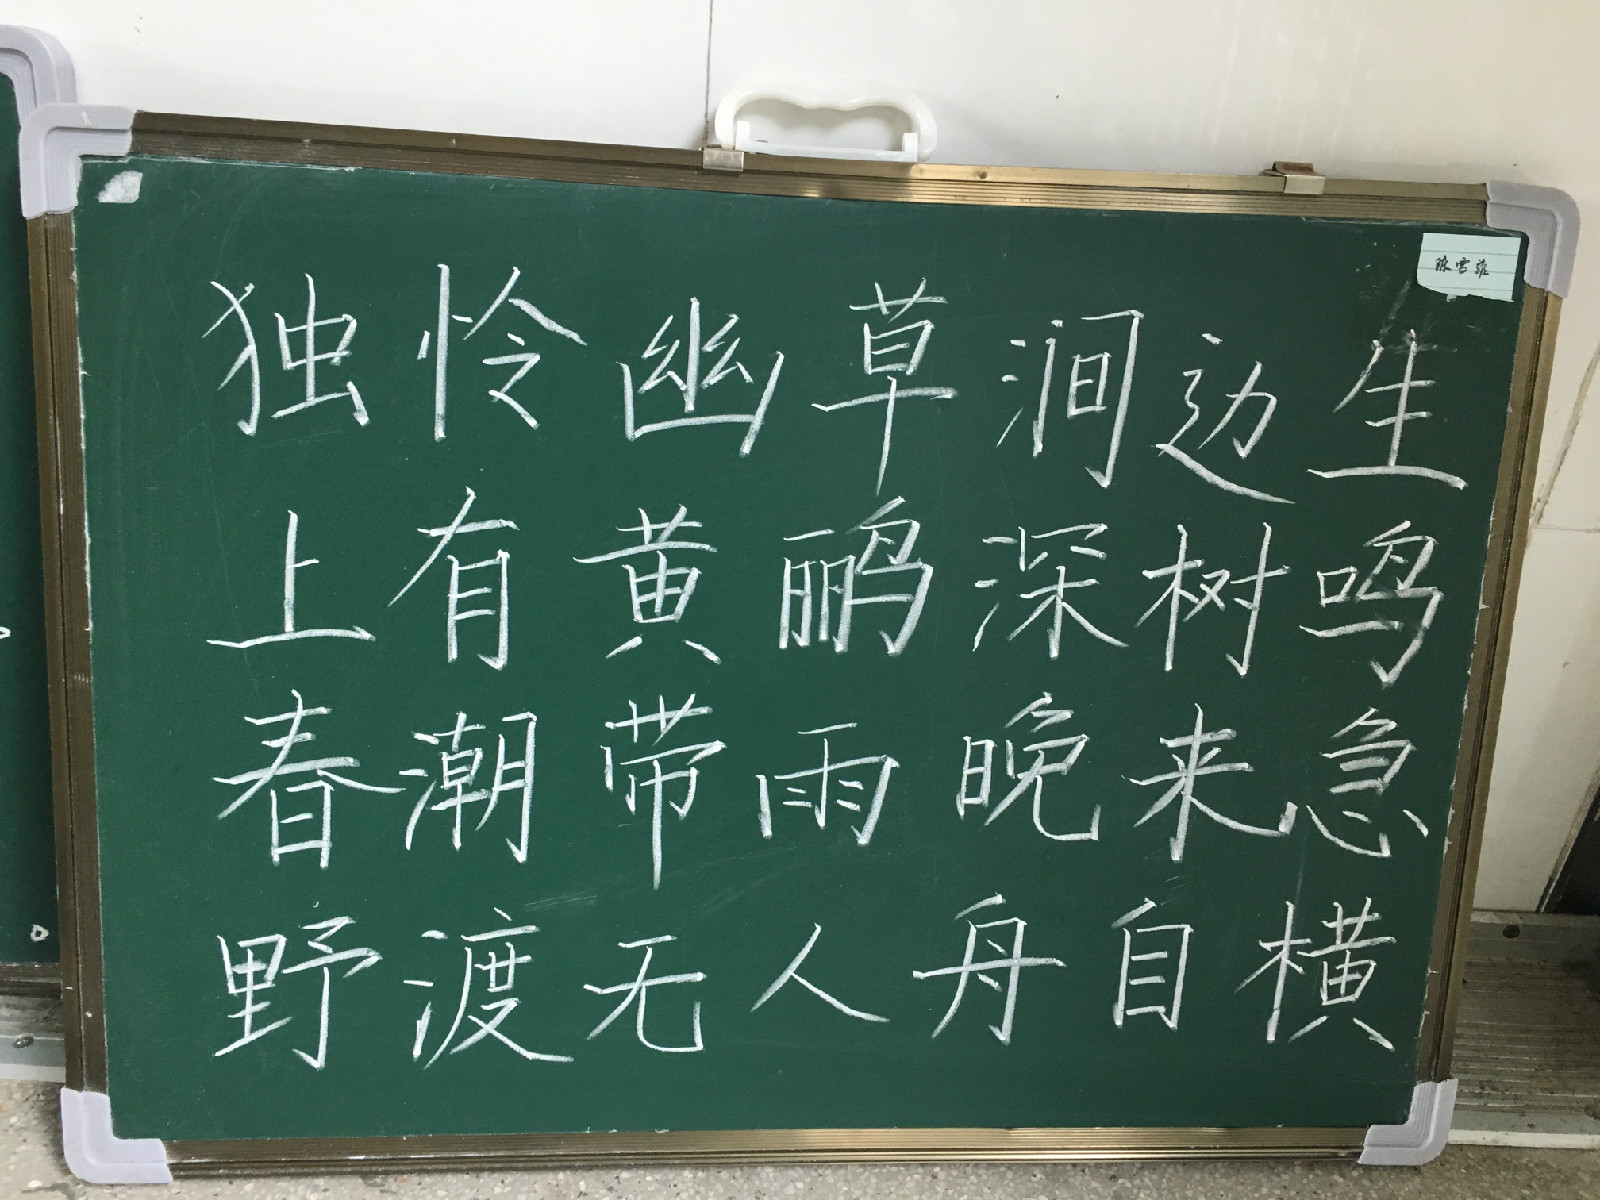 独怜幽草涧边生
上有黄鹂深树鸣
春潮带雨晚来急
野渡无人舟自横